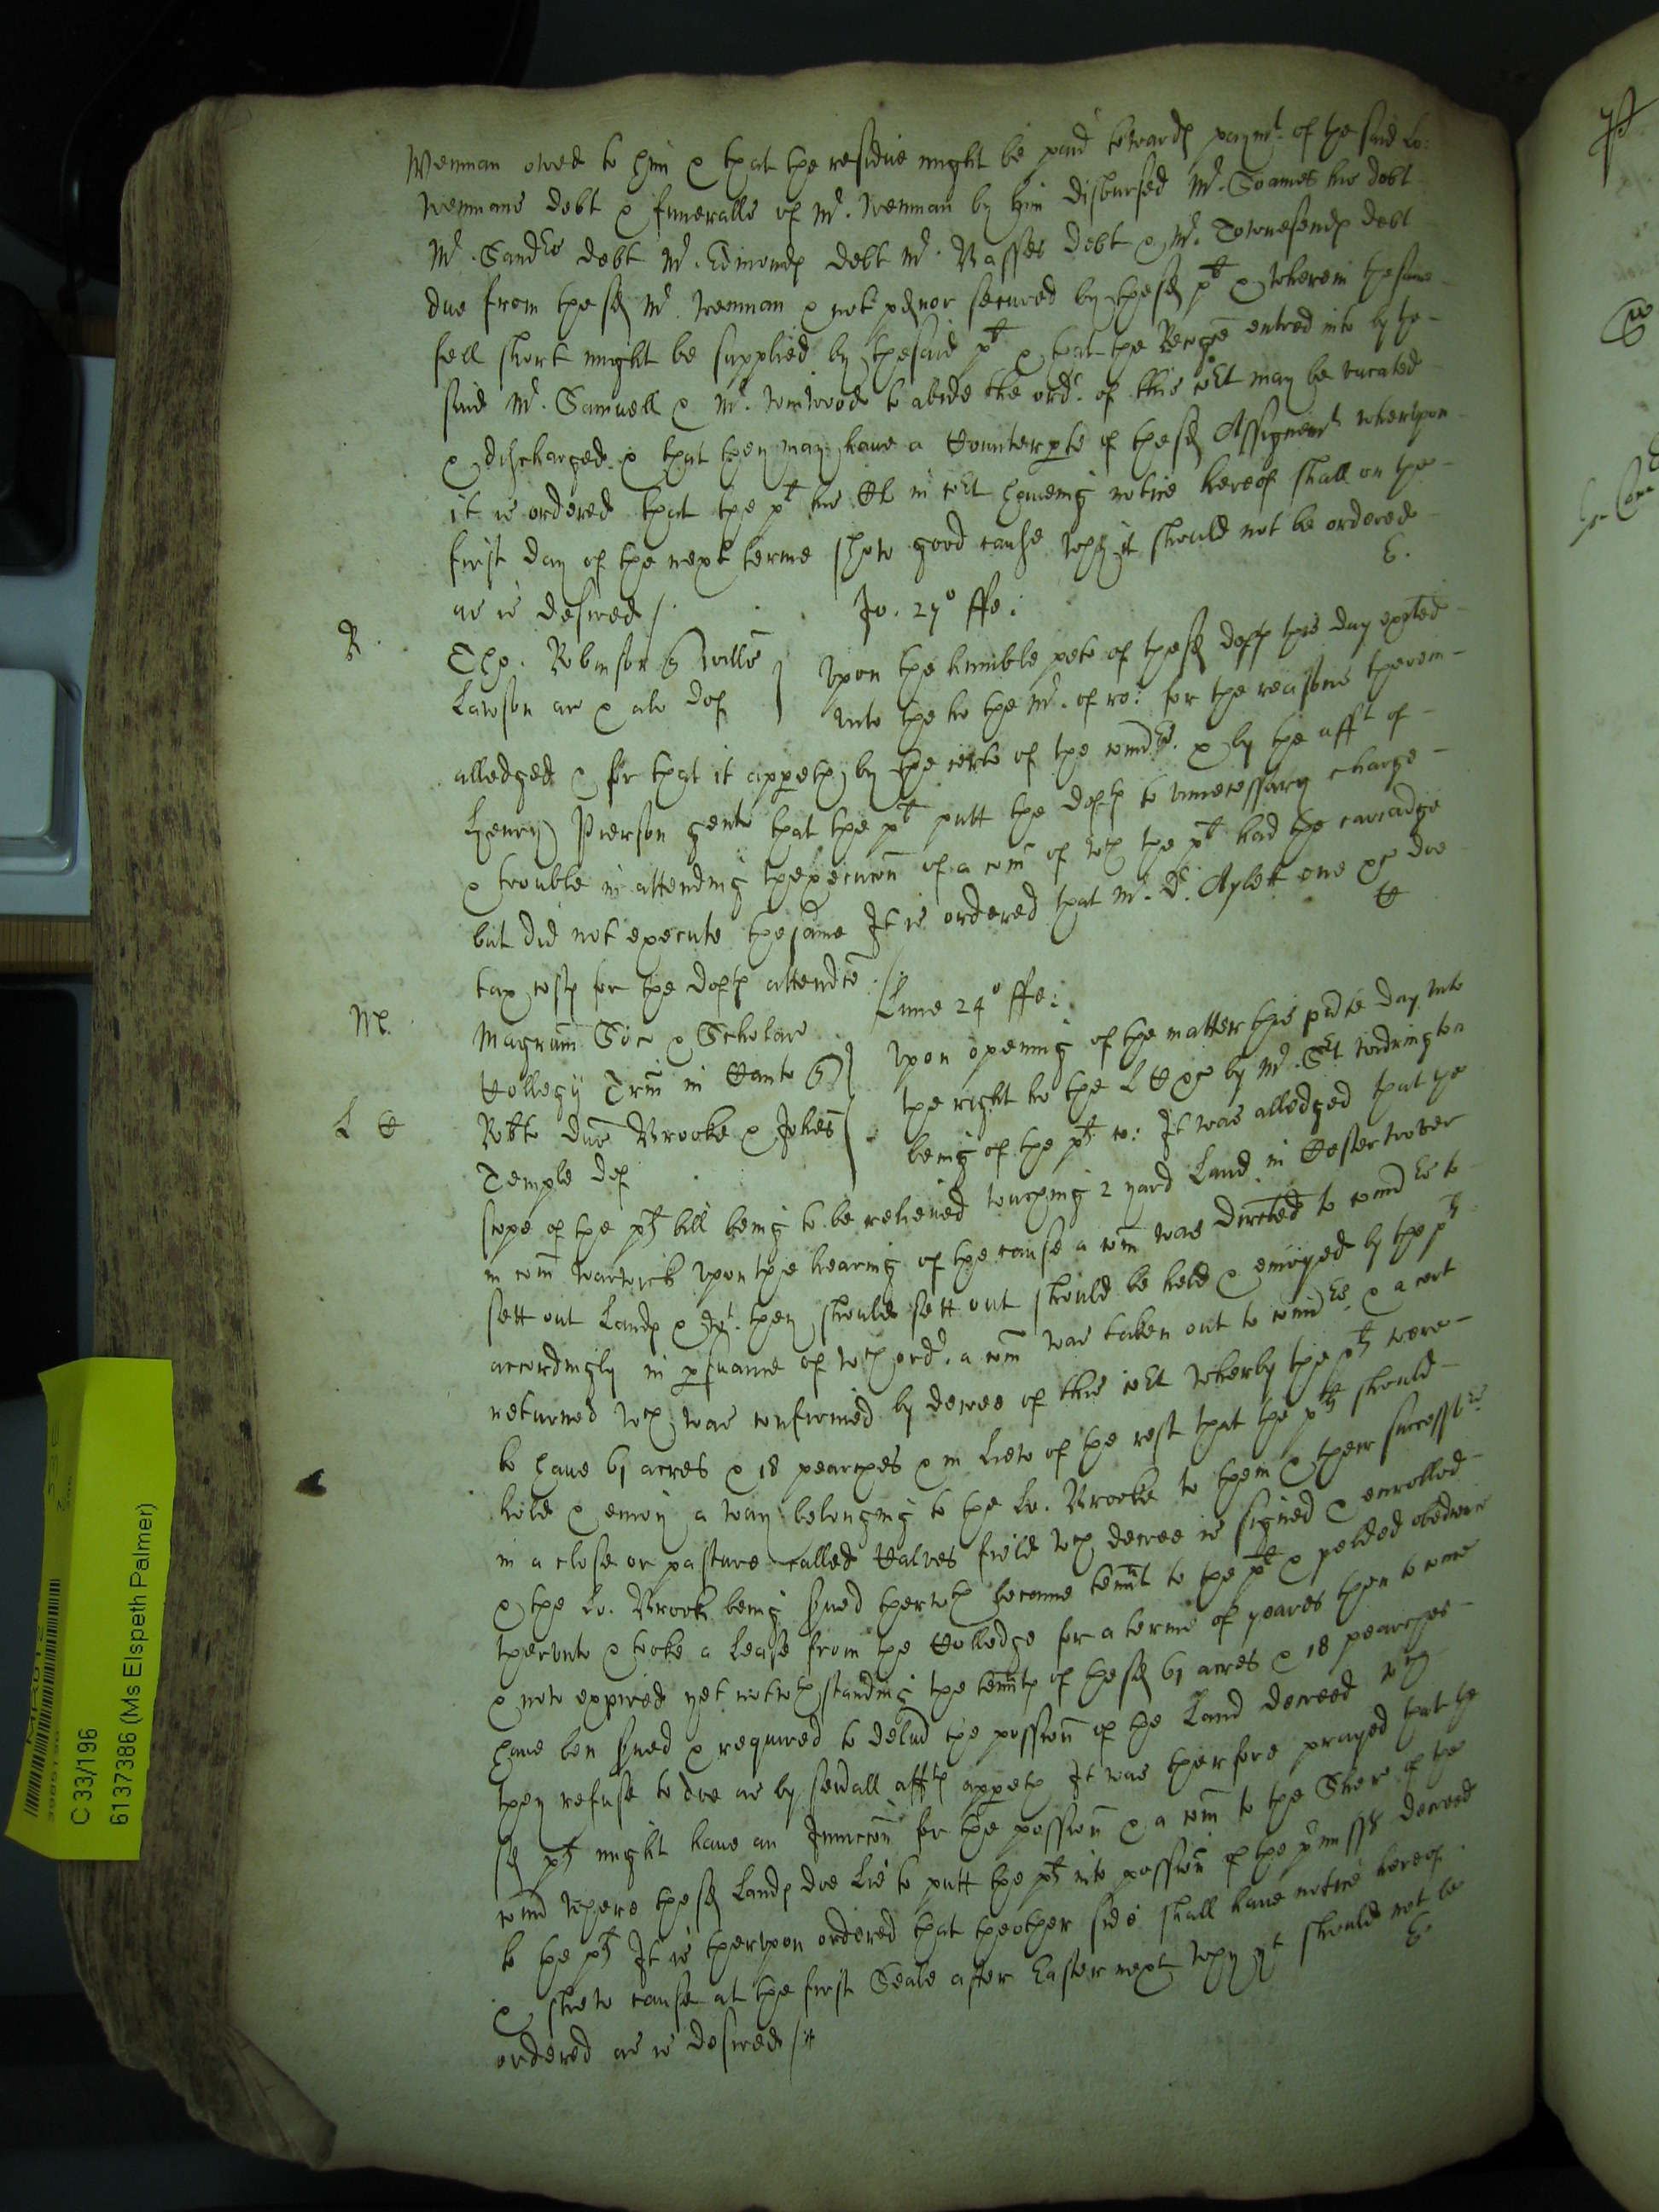 Wenman owed to him & that the residue might be paid towards paymt. of the said Lo:
Wenmans debt & funeralls of Mr. Wenman by him disbursed Mr. Soames his debt
Mr. Sandrs debt Mr. Edmonds debt Mr. Basses debt & Mr. Townesends debt
due from the sd Mr. Wenman & not pd nor secured by the sd plt & wherein the same
fell short might be supplied by the said plt & that the Recogce entred into by the
said Mr. Samuell & Mr. Winwood to abide the ordr. of this cort may be vacated
& discharged & that they may have a Counterpte of the sd Assignemt wherupon
it is ordered that the plt his Cl in cort haveing notice hereof shall on the
first day of the next terme shew good cause why it should not be ordered
as is desired /. E.
Jo. 27o ffe:
R. Chr. Robinson Willo Lawson ar & als def
Upon the humble peto of the sd defts this day exhited
unto the ho the Mr. of ro: for the reasons therein
alledged & for that it appeth by the certe of the comrs. & by the afft of
Henry Pierson gent that the plt putt the defts to unnecessary charge
& trouble in attending the execucon of a com of wch the plt had the cariadge
but did not execute the same It is ordered that Mr. Dr. Aylett one &c doe
tax costs for the defts attendce / C
Lune 24o ffe:
M. Magrum Soc & Scholar
Collegij Trin in Cant
L C Robto Dno Brooke & Johes
Temple def
Upon opening of the matter this pnte day unto
the right ho the L C &c by Mr. Srt. Widrington
being of the plts co: It was alledged that the
scope of the plts bill being to be relieved touching 2 yard Land in Chesterwover
in com Warwick Upon the hearing of the cause a com was directed to comrs to
sett out Lands & wt. they should sett out should be held & enioyed by the plts
accordingly in psuance of wch ordr. a com was taken out to comrs & a cert
returned wch was confirmed by decree of this cort wherby the plts were
to have 61 acres & 18 pearches & in Liew of the rest that the plts should
hold & enioy a way belonging to the Lo. Brooke to them & their successrs
in a close or pasture called Calves field wch decree is signed & enrolled
& the Lo. Brook being served therwth became tennt to the plts & yelded obedience
therunto & tooke a Lease from the Colledge for a terme of yeares then to come
& now expired yet notwthstanding the tennts of the sd 61 acres & 18 pearches
have ben served & required to deliver the possion of the Land decreed wch
they refuse to doe as by severall affts appeth It was therfore prayed that the
sd plts might have an Iniuccon for the possion & a com to the Sher of the
com where the sd Lands doe Lie to putt the plts into possion of the premisses decreed
to the plts It is therupon ordered that the other side shall have notice hereof
& shew cause at the first Seale after Easter next why yt should not be
ordered as is desired / E
C 33/196
6137386 (Ms Elspeth Palmer)